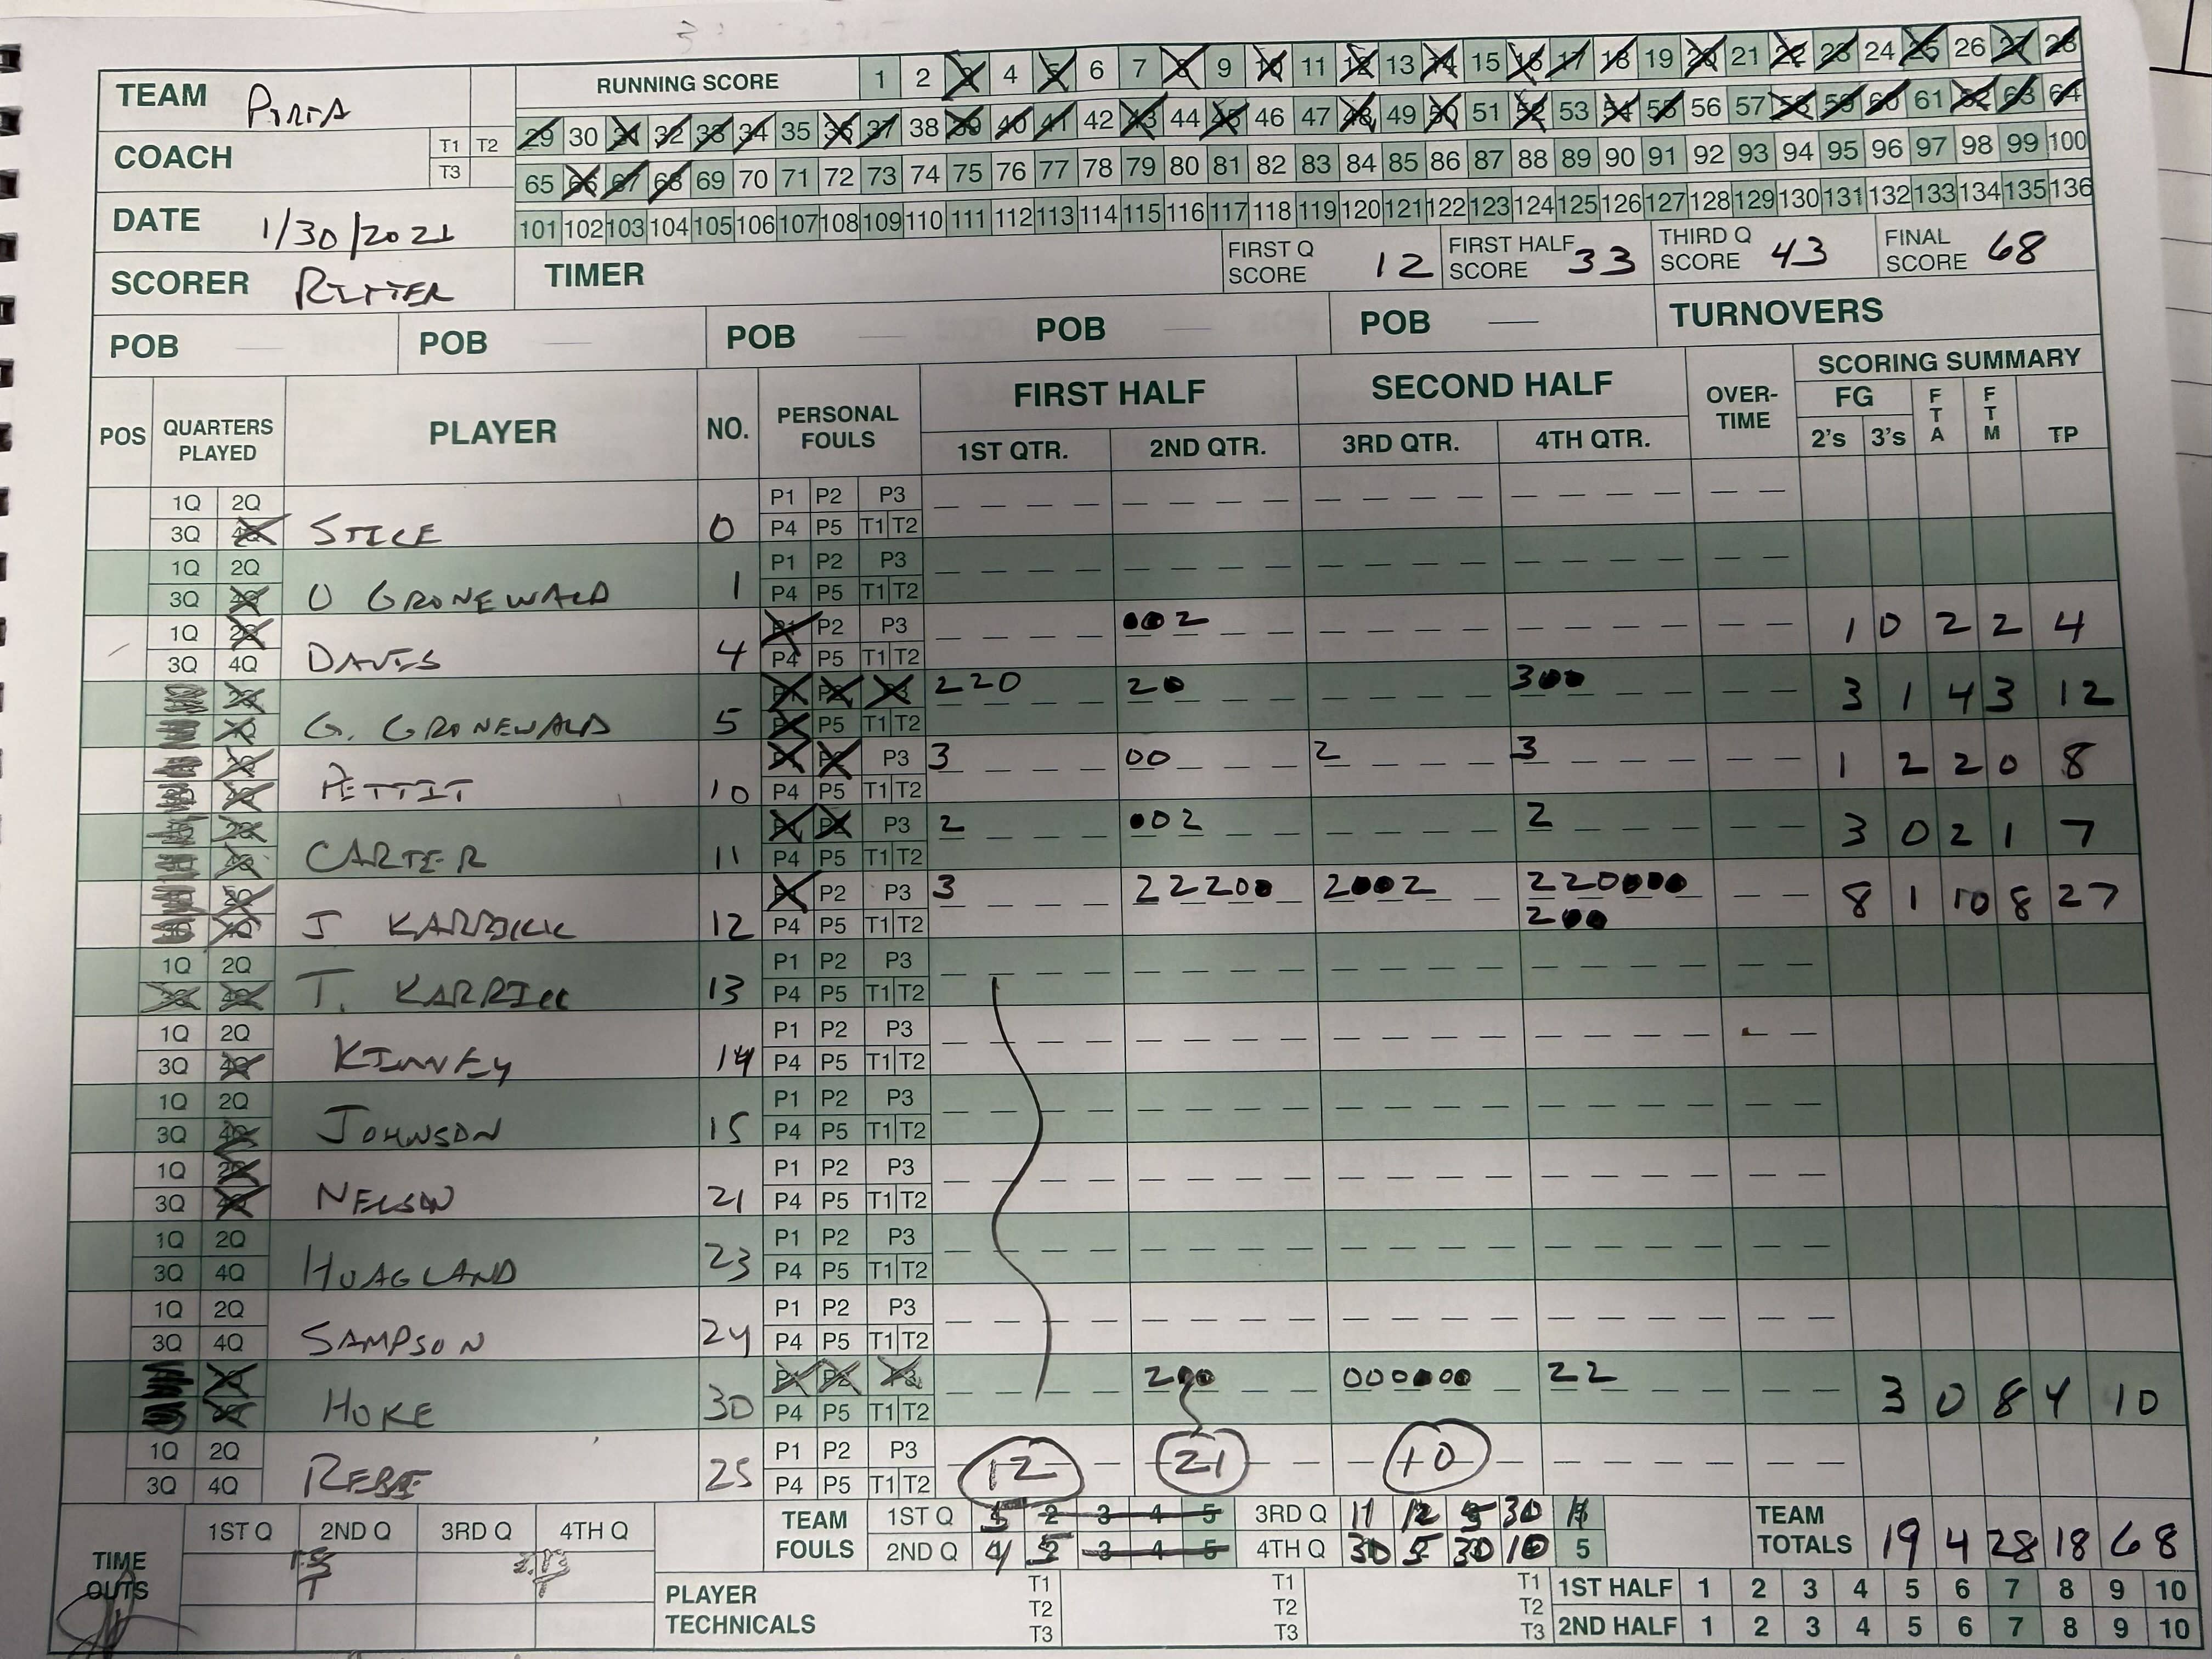 TEAM Pirta RUNNING SCORE 1 2 3 4 5 6 7 8 9 10 11 12 13 14 15 16 17 18 19 20 21 22 23 24 25 26 27 28
29 30 31 32 33 34 35 36 37 38 39 40 41 42 43 44 45 46 47 48 49 50 51 52 53 54 55 56 57 58 59 60 61 62 63 64
COACH T1 T2 T3
65 66 67 68 69 70 71 72 73 74 75 76 77 78 79 80 81 82 83 84 85 86 87 88 89 90 91 92 93 94 95 96 97 98 99 100
DATE 1/30/2021 101 102 103 104 105 106 107 108 109 110 111 112 113 114 115 116 117 118 119 120 121 122 123 124 125 126 127 128 129 130 131 132 133 134 135 136
SCORER RITTER TIMER FIRST Q SCORE 12 FIRST HALF SCORE 33 THIRD Q SCORE 43 FINAL SCORE 68
POB POB POB POB POB TURNOVERS
POS QUARTERS PLAYED PLAYER NO. PERSONAL FOULS FIRST HALF SECOND HALF OVER-TIME SCORING SUMMARY
1ST QTR. 2ND QTR. 3RD QTR. 4TH QTR. FG 2's 3's FTA FTM TP
1Q 2Q P1 P2 P3
3Q 4Q STICE 0 P4 P5 T1 T2
1Q 2Q P1 P2 P3
3Q 4Q O GRONEWALD 1 P4 P5 T1 T2
1Q 2Q P1 P2 P3 002 1 0 2 2 4
3Q 4Q DAVIS 4 P4 P5 T1 T2
220 20 300 3 1 4 3 12
G. GRONEWALD 5 P5 T1 T2
P3 3 00 2 3 1 2 2 0 8
PETTIT 10 P4 P5 T1 T2
P3 2 002 2 3 0 2 1 7
CARTER 11 P4 P5 T1 T2
P2 P3 3 22200 2002 220000 8 1 10 8 27
J KARRICK 12 P4 P5 T1 T2 200
1Q 2Q P1 P2 P3
3Q 4Q T. KARRICK 13 P4 P5 T1 T2
1Q 2Q P1 P2 P3
3Q 4Q KINNEY 14 P4 P5 T1 T2
1Q 2Q P1 P2 P3
3Q 4Q JOHNSON 15 P4 P5 T1 T2
1Q 2Q P1 P2 P3
3Q 4Q NELSON 21 P4 P5 T1 T2
1Q 2Q P1 P2 P3
3Q 4Q HOAGLAND 23 P4 P5 T1 T2
1Q 2Q P1 P2 P3
3Q 4Q SAMPSON 24 P4 P5 T1 T2
P1 P2 P3 200 000000 22 3 0 8 4 10
HOKE 30 P4 P5 T1 T2
1Q 2Q P1 P2 P3 12 21 10
3Q 4Q 25 P4 P5 T1 T2
TIME OUTS 1ST Q 2ND Q 3RD Q 4TH Q
TEAM FOULS 1ST Q 5 2 3 4 5 3RD Q 11 12 5 30 11 TEAM TOTALS 19 4 28 18 68
2ND Q 4 5 3 4 5 4TH Q 30 5 30 10 5
PLAYER TECHNICALS T1 T2 T3 T1 T2 T3 T1 T2 T3
1ST HALF 1 2 3 4 5 6 7 8 9 10
2ND HALF 1 2 3 4 5 6 7 8 9 10